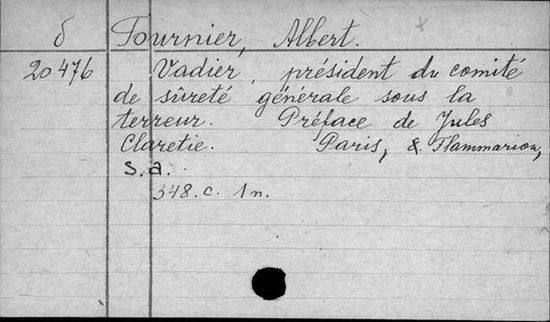 б Tournier, Albert.
20476 Vadier, président du comité
de sûreté générale sous la
terreur. Préface de Jules
Claretie. Paris, E. Flammarion,
s.a.
348.c. 1n.